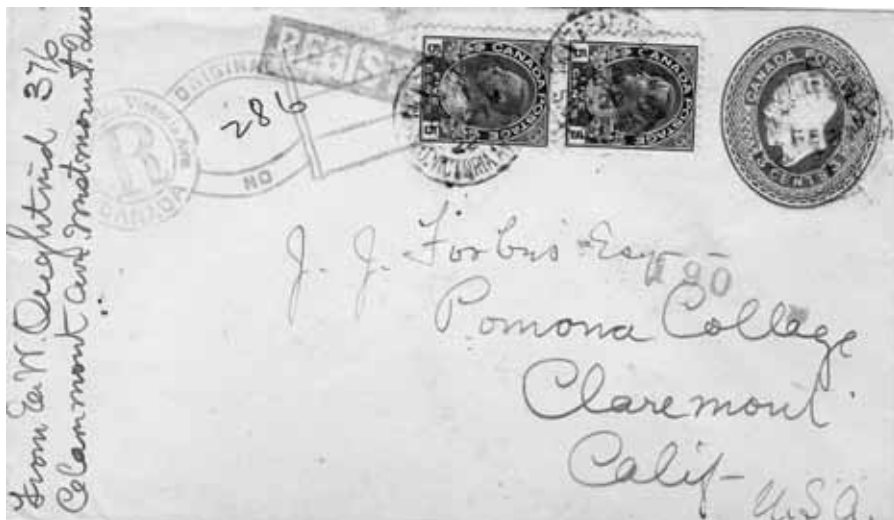 From E. W. 376
Claremont Ave. Westmount. Que
R
CANADA
ORIGINAL
NO
286
REGIS
CANADA POSTAGE
5 5
CANADA POSTAGE
5 5
VICTORIA
CANADA POSTAGE
5 CENTS 5
J. J. Forbes Esq
190
Pomona College
Claremont
Calif
U.S.A.